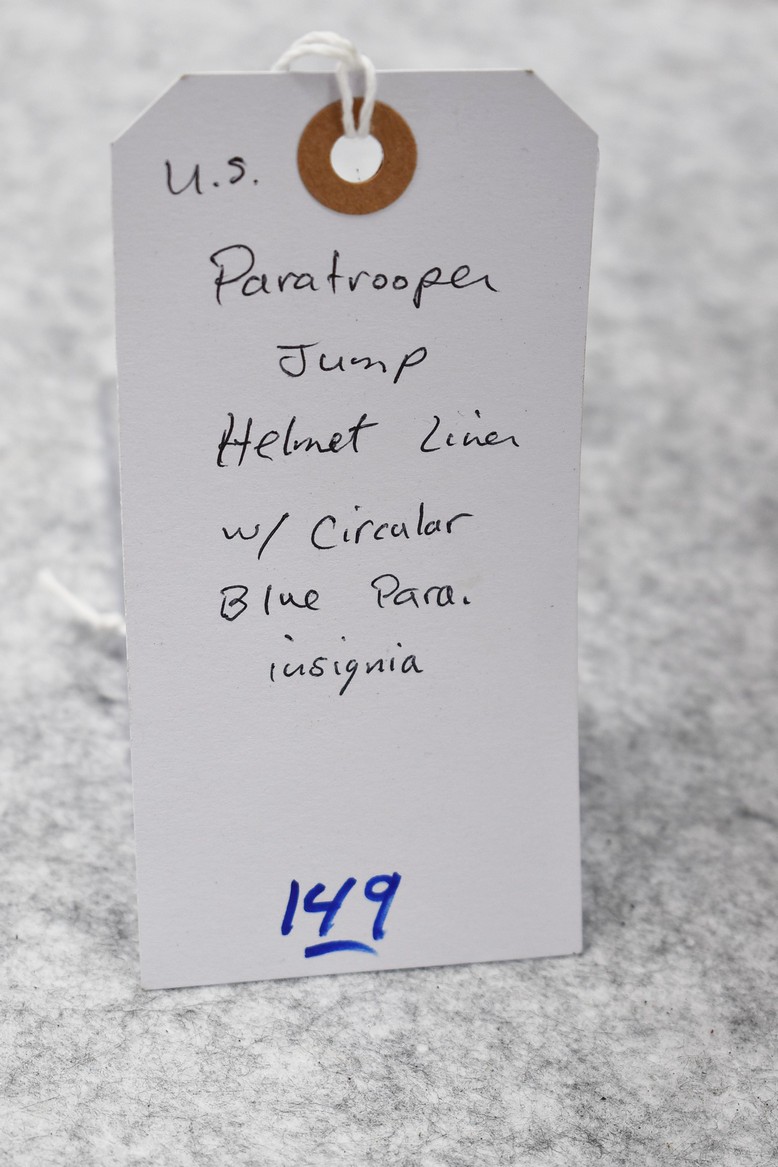 U.S.
Paratrooper
Jump
Helmet Liner
w/ Circular
Blue Para.
insignia
149